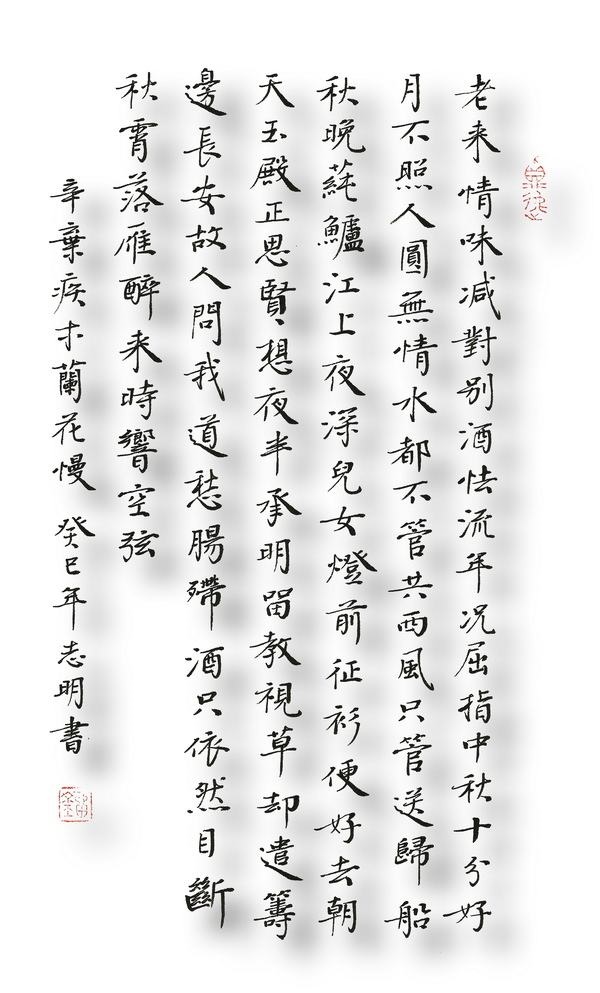 老来情味减對别酒怯流年况屈指中秋十分好
月不照人圓無情水都不管共西風只管送歸船
秋晚蒓鱸江上夜深兒女燈前征衫便好去朝
天玉殿正思賢想夜半承明留教視草却遣籌
邊長安故人問我道愁腸殢酒只依然目斷
秋霄落雁醉来時響空弦
辛棄疾木蘭花慢 癸巳年志明書